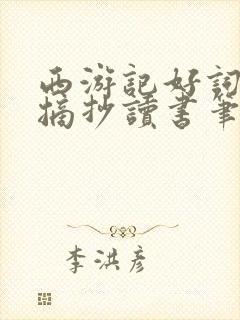 西游記好詞
摘抄讀書筆
李洪彦